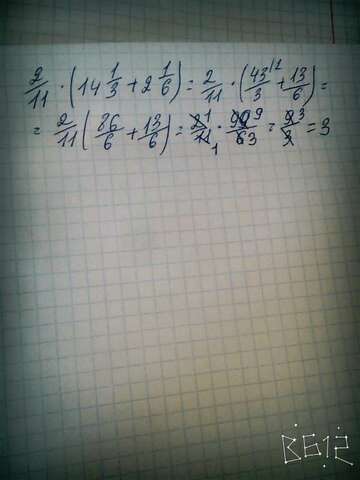 2/11 · (14 1/3 + 2 1/6) = 2/11 · (43/3 \2 + 13/6) =
= 2/11 (86/6 + 13/6) = 2 1/11 1 · 99 9/6 3 = 9 3/3 = 3
В612